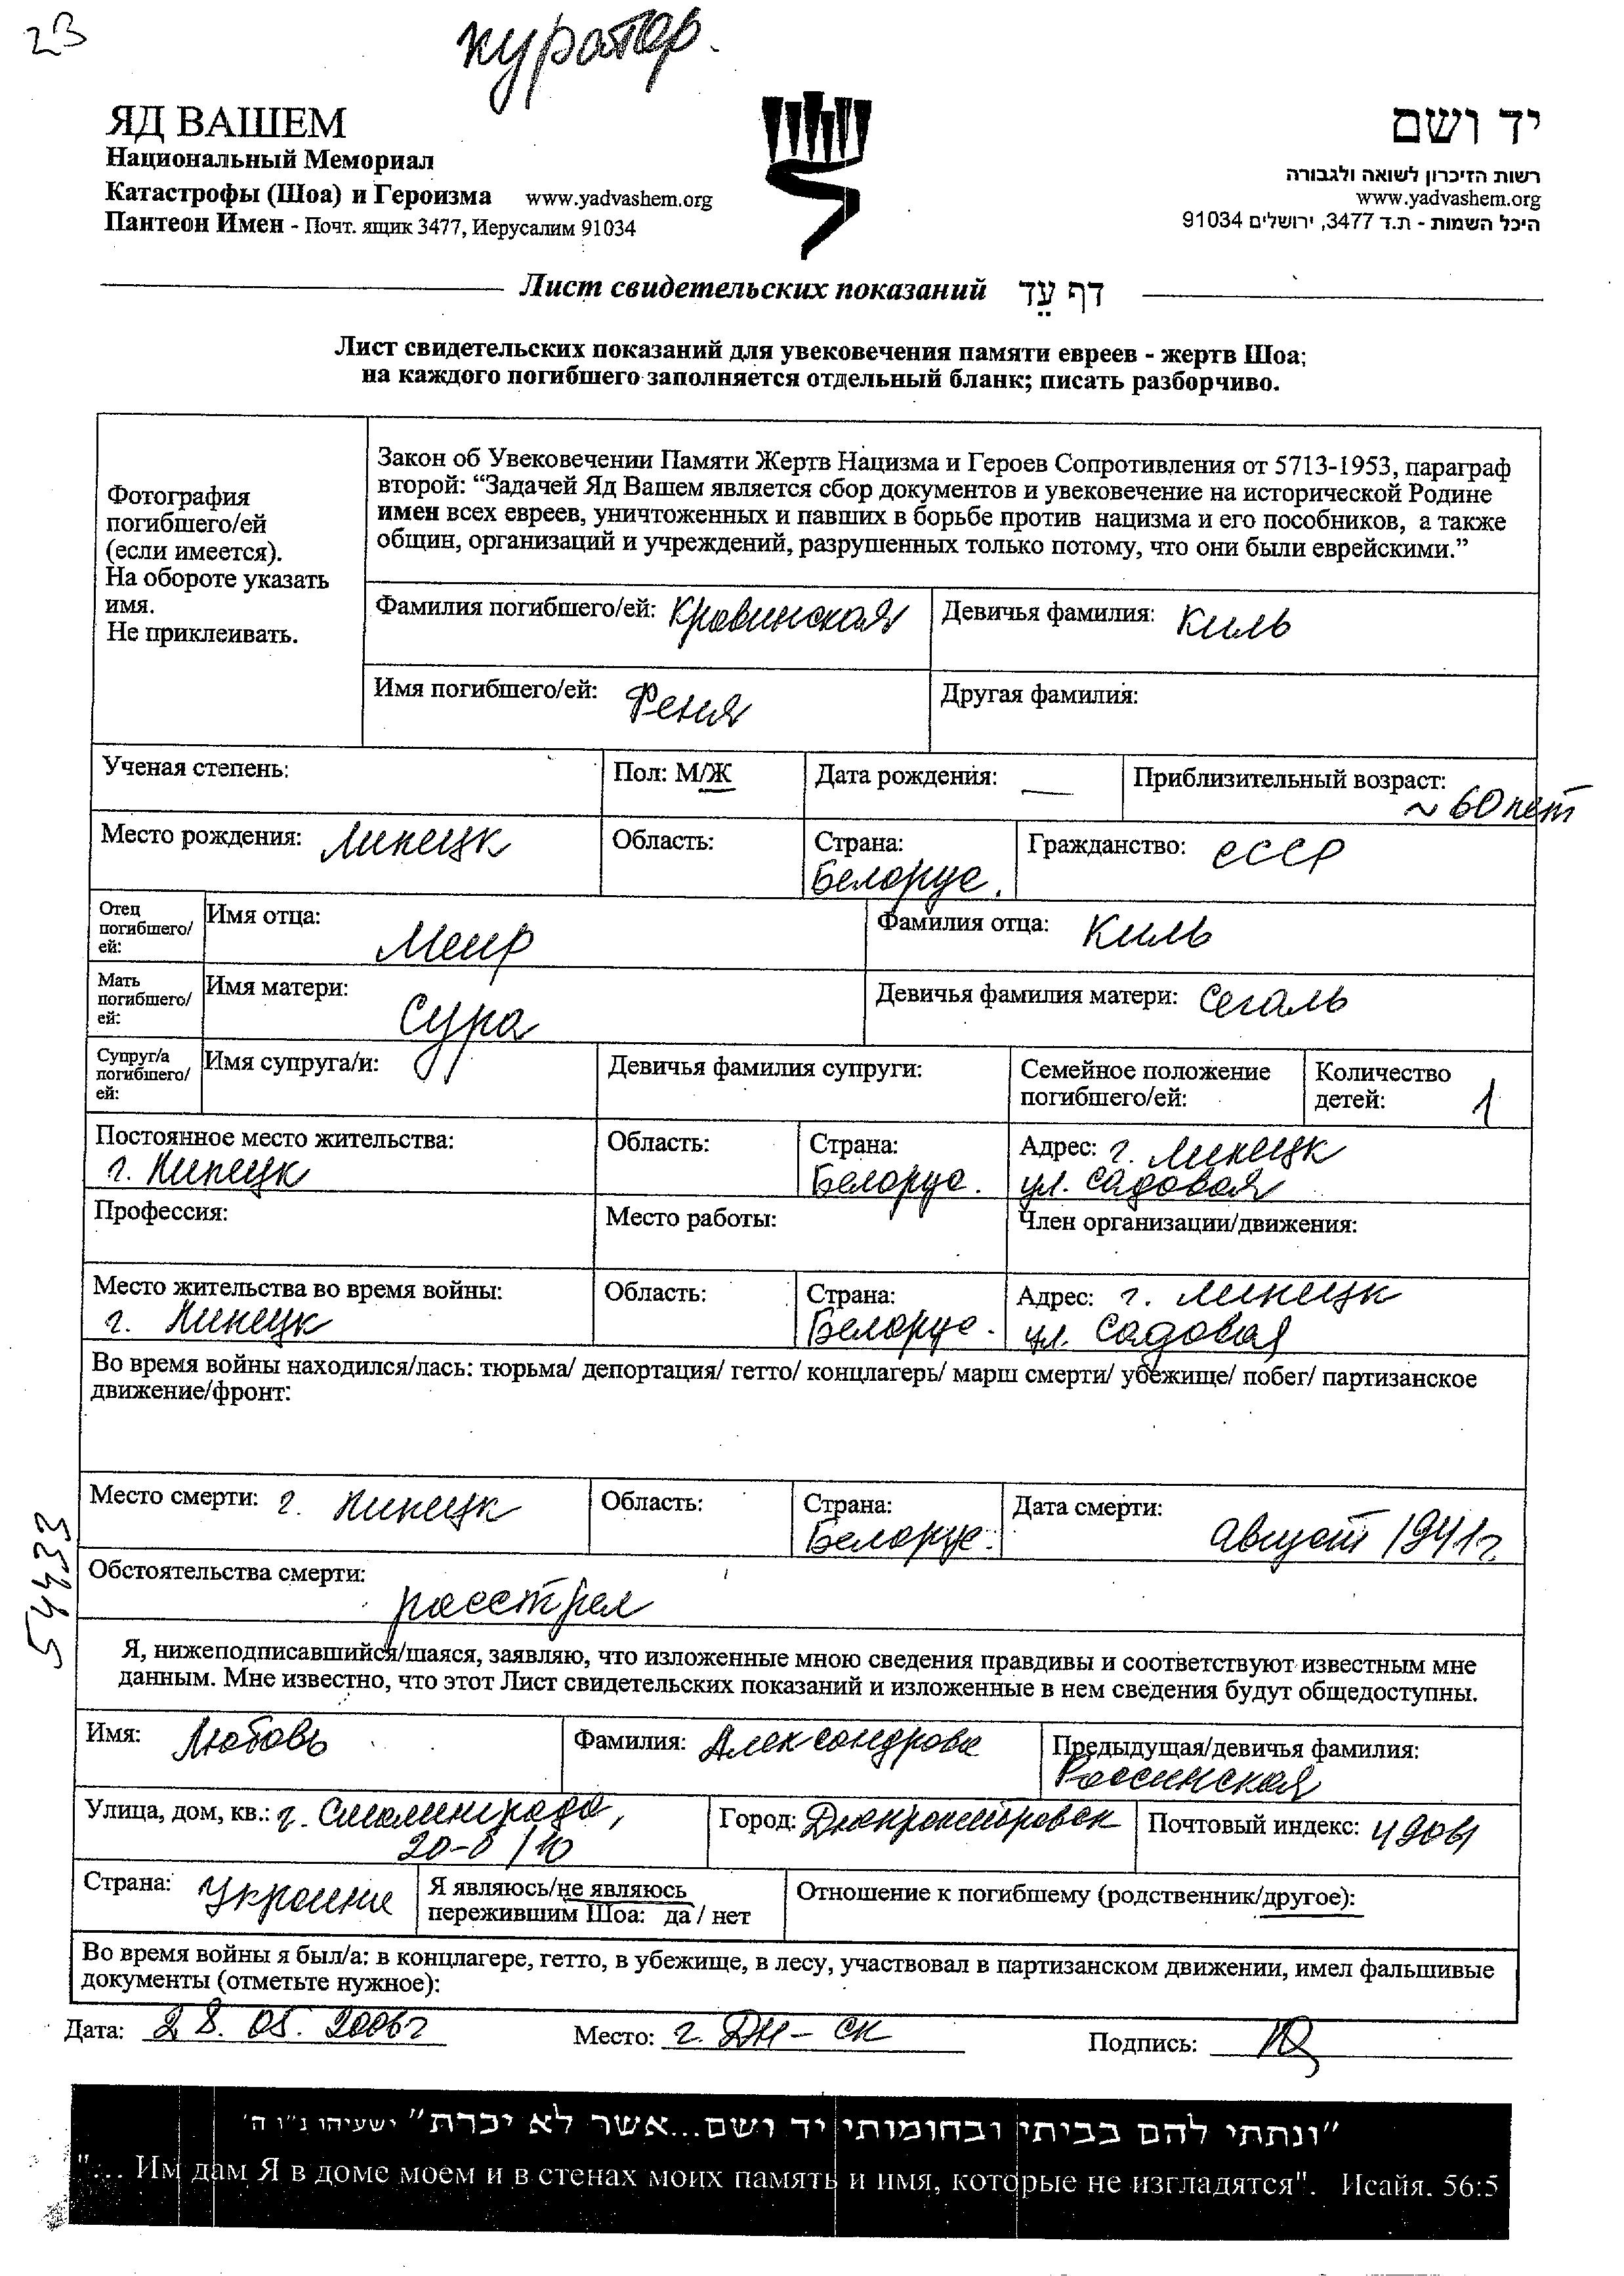 23
куратор.
ЯД ВАШЕМ
Национальный Мемориал
Катастрофы (Шоа) и Героизма www.yadvashem.org
Пантеон Имен - Почт. ящик 3477, Иерусалим 91034
יד ושם
רשות הזיכרון לשואה ולגבורה
www.yadvashem.org
היכל השמות - ת.ד 3477, ירושלים 91034
Лист свидетельских показаний דף עֵד
Лист свидетельских показаний для увековечения памяти евреев - жертв Шоа;
на каждого погибшего заполняется отдельный бланк; писать разборчиво.
Фотография
погибшего/ей
(если имеется).
На обороте указать
имя.
Не приклеивать.
Закон об Увековечении Памяти Жертв Нацизма и Героев Сопротивления от 5713-1953, параграф
второй: “Задачей Яд Вашем является сбор документов и увековечение на исторической Родине
имен всех евреев, уничтоженных и павших в борьбе против нацизма и его пособников, а также
общин, организаций и учреждений, разрушенных только потому, что они были еврейскими.”
Фамилия погибшего/ей: Кровинская Девичья фамилия: Киль
Имя погибшего/ей: Феня Другая фамилия:
Ученая степень: Пол: М/Ж Дата рождения: — Приблизительный возраст:
~ 60 лет
Место рождения: Липецк Область: Страна: Гражданство: СССР
Белорус.
Отец
погибшего/
ей:
Имя отца: Меир Фамилия отца: Киль
Мать
погибшего/
ей:
Имя матери: Сура Девичья фамилия матери: Сегаль
Супруг/а
погибшего/
ей:
Имя супруга/и: Девичья фамилия супруги: Семейное положение
погибшего/ей:
Количество
детей: 1
Постоянное место жительства: Область: Страна: Адрес: г. Липецк
г. Липецк Белорус. ул. Садовая
Профессия: Место работы: Член организации/движения:
Место жительства во время войны: Область: Страна: Адрес: г. Липецк
г. Липецк Белорус. ул. Садовая
Во время войны находился/лась: тюрьма/ депортация/ гетто/ концлагерь/ марш смерти/ убежище/ побег/ партизанское
движение/фронт:
Место смерти: г. Липецк Область: Страна: Дата смерти:
Белорус. август 1941г.
54433
Обстоятельства смерти:
расстрел
Я, нижеподписавшийся/шаяся, заявляю, что изложенные мною сведения правдивы и соответствуют известным мне
данным. Мне известно, что этот Лист свидетельских показаний и изложенные в нем сведения будут общедоступны.
Имя: Любовь Фамилия: Александрова Предыдущая/девичья фамилия:
Россинская
Улица, дом, кв.: Город: Днепропетровск Почтовый индекс:
Страна: Украина Я являюсь/не являюсь
пережившим Шоа: да / нет
Отношение к погибшему (родственник/другое):
Во время войны я был/а: в концлагере, гетто, в убежище, в лесу, участвовал в партизанском движении, имел фальшивые
документы (отметьте нужное):
Дата: 28. 05. 2006г Место: г. Дн-ск Подпись:
"ונתתי להם בביתי ובחומותי יד ושם...אשר לא יכרת" ישעיהו נ"ו ה'
"... Им дам Я в доме моем и в стенах моих память и имя, которые не изгладятся". Исайя. 56:5